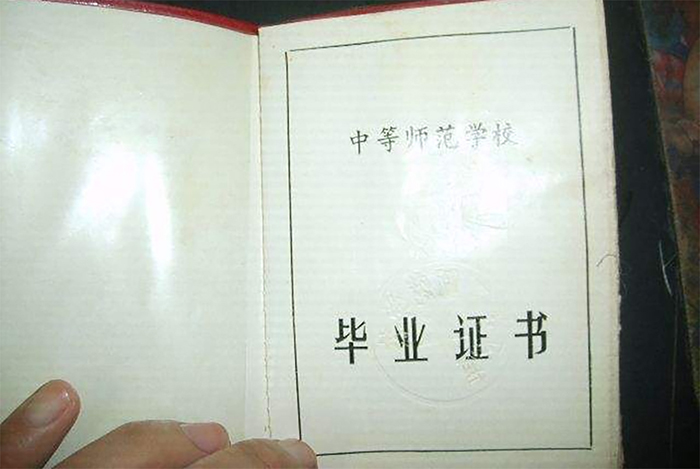 中等师范学校
毕业证书